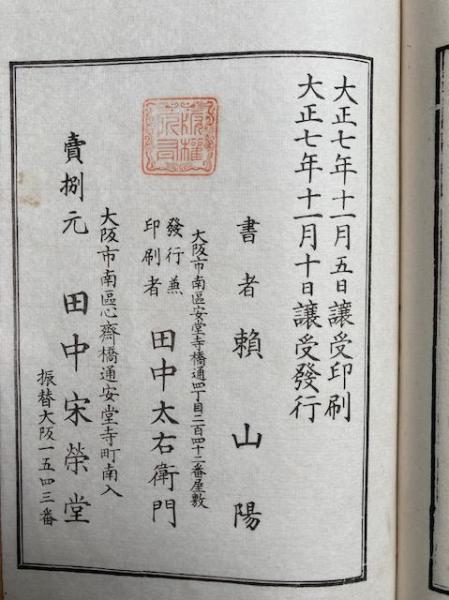 大正七年十一月五日讓受印刷
大正七年十一月十日讓受發行
書者 賴山陽
大阪市南區安堂寺橋通四丁目二百四十二番屋敷
發行兼
印刷者 田中太右衛門
版權所有
大阪市南區心齋橋通安堂寺町南入
賣捌元 田中宋榮堂
振替大阪一五四三番